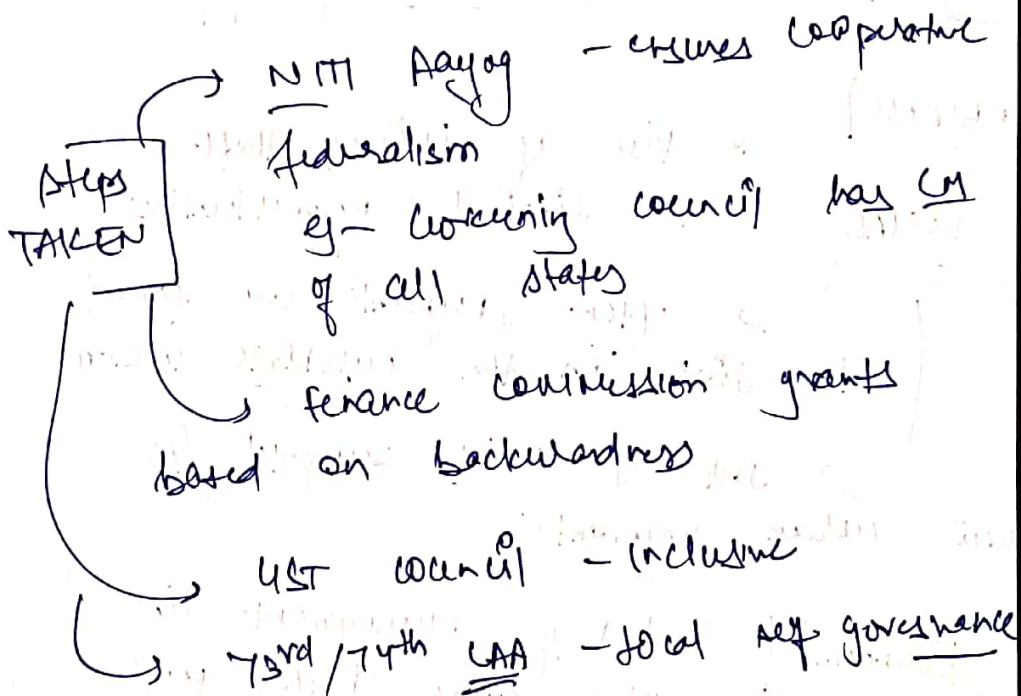 NITI Aayog - ensures cooperative
federalism
Steps
TAKEN
eg - Governing council has CM
of all states
finance commission grants
based on backwardness
GST council - inclusive
73rd/74th CAA - local self governance